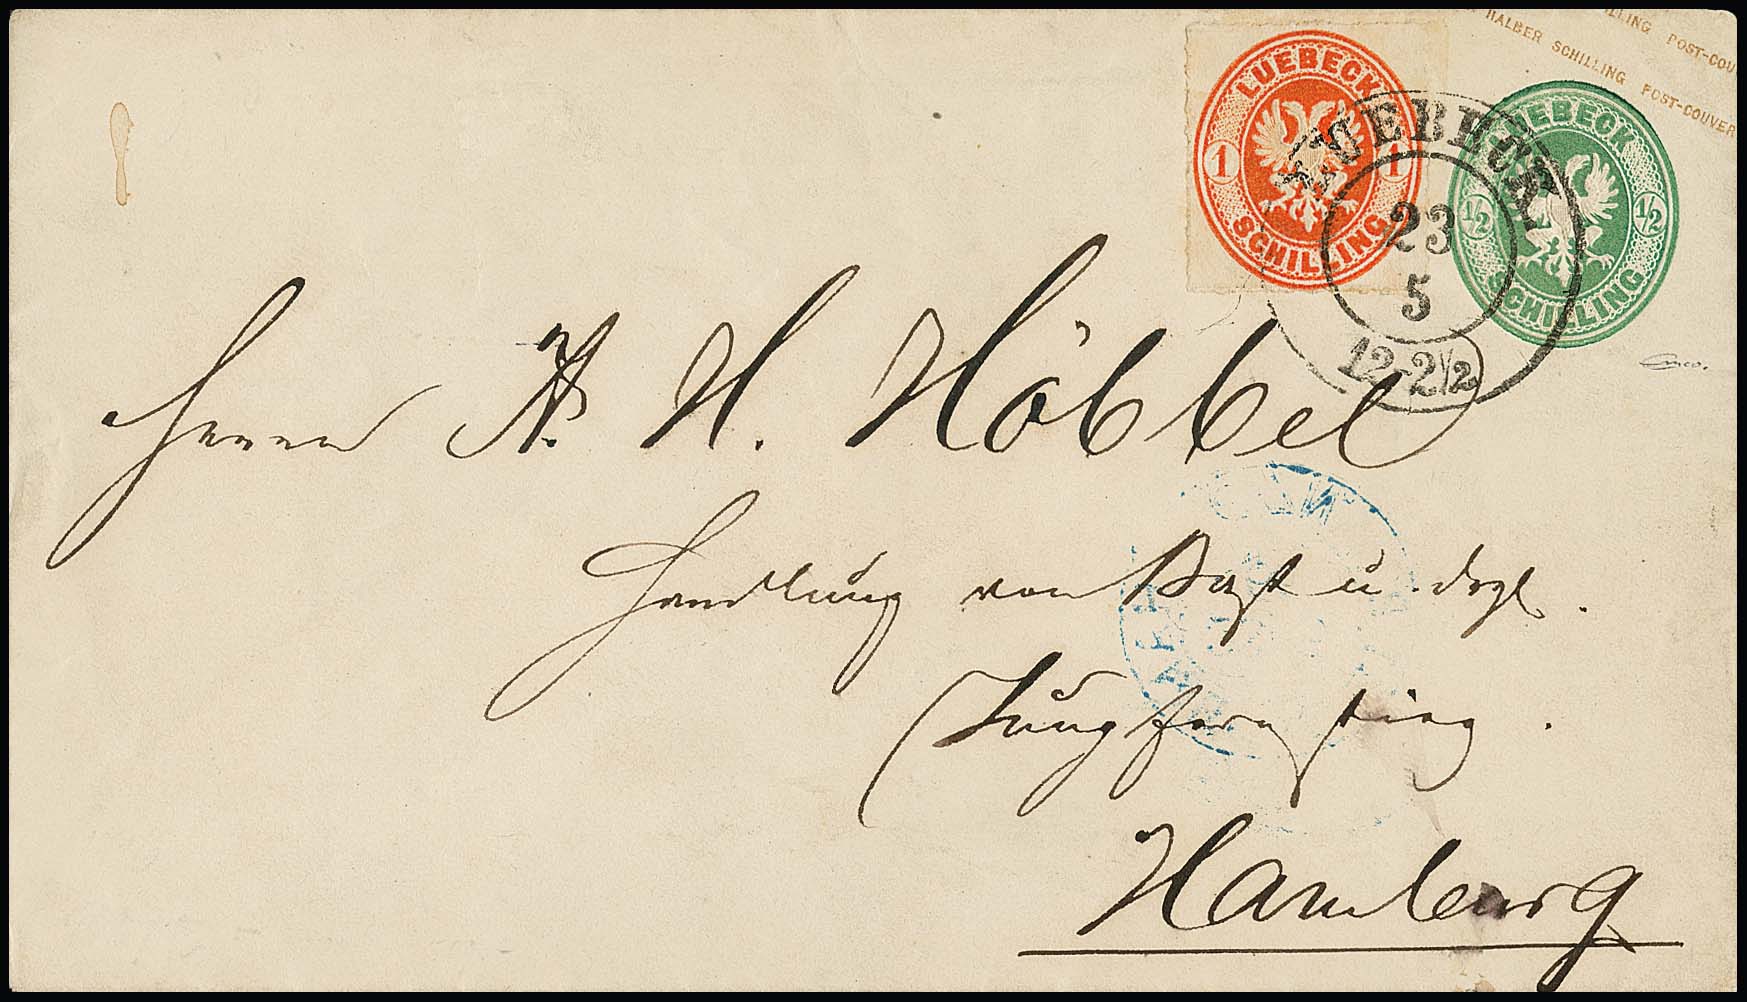 HALBER SCHILLING POST-COUVER
LLING POST-COU
LUEBECK
1 1
SCHILLING
LUEBECK
1/2 1/2
SCHILLING
LUEBECK
23
5
12-2 1/2
Herrn A. H. Höbbel
Handlung von Bast u. drgl.
Jungfernstieg.
Hamburg